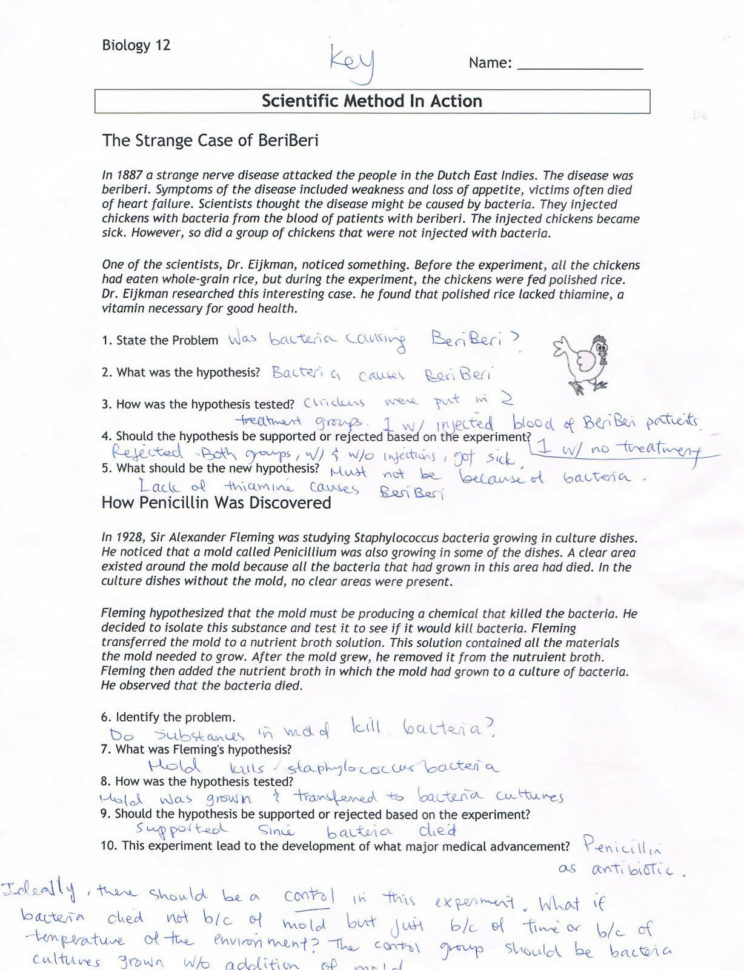 Biology 12
Key
Name:
Scientific Method In Action
The Strange Case of BeriBeri
In 1887 a strange nerve disease attacked the people in the Dutch East Indies. The disease was
beriberi. Symptoms of the disease included weakness and loss of appetite, victims often died
of heart failure. Scientists thought the disease might be caused by bacteria. They injected
chickens with bacteria from the blood of patients with beriberi. The injected chickens became
sick. However, so did a group of chickens that were not injected with bacteria.
One of the scientists, Dr. Eijkman, noticed something. Before the experiment, all the chickens
had eaten whole-grain rice, but during the experiment, the chickens were fed polished rice.
Dr. Eijkman researched this interesting case. he found that polished rice lacked thiamine, a
vitamin necessary for good health.
1. State the Problem Was bacteria causing BeriBeri?
2. What was the hypothesis? Bacteria causes BeriBeri
3. How was the hypothesis tested? Chickens were put in 2
treatment groups. 1 w/ injected blood of BeriBeri patients.
4. Should the hypothesis be supported or rejected based on the experiment? 1 w/ no treatment
Rejected. Both groups, w/ & w/o injections, got sick.
5. What should be the new hypothesis? Must not be because of bacteria.
Lack of thiamine causes BeriBeri
How Penicillin Was Discovered
In 1928, Sir Alexander Fleming was studying Staphylococcus bacteria growing in culture dishes.
He noticed that a mold called Penicillium was also growing in some of the dishes. A clear area
existed around the mold because all the bacteria that had grown in this area had died. In the
culture dishes without the mold, no clear areas were present.
Fleming hypothesized that the mold must be producing a chemical that killed the bacteria. He
decided to isolate this substance and test it to see if it would kill bacteria. Fleming
transferred the mold to a nutrient broth solution. This solution contained all the materials
the mold needed to grow. After the mold grew, he removed it from the nutruient broth.
Fleming then added the nutrient broth in which the mold had grown to a culture of bacteria.
He observed that the bacteria died.
6. Identify the problem.
Do substances in mold kill bacteria?
7. What was Fleming's hypothesis?
Mold kills staphylococcus bacteria
8. How was the hypothesis tested?
Mold was grown & transferred to bacteria cultures
9. Should the hypothesis be supported or rejected based on the experiment?
Supported since bacteria died
10. This experiment lead to the development of what major medical advancement? Penicillin
as antibiotic.
Ideally, there should be a control in this experiment. What if
bacteria died not b/c of mold but just b/c of time or b/c of
temperature of the environment? The control group should be bacteria
cultures grown w/o addition of mold